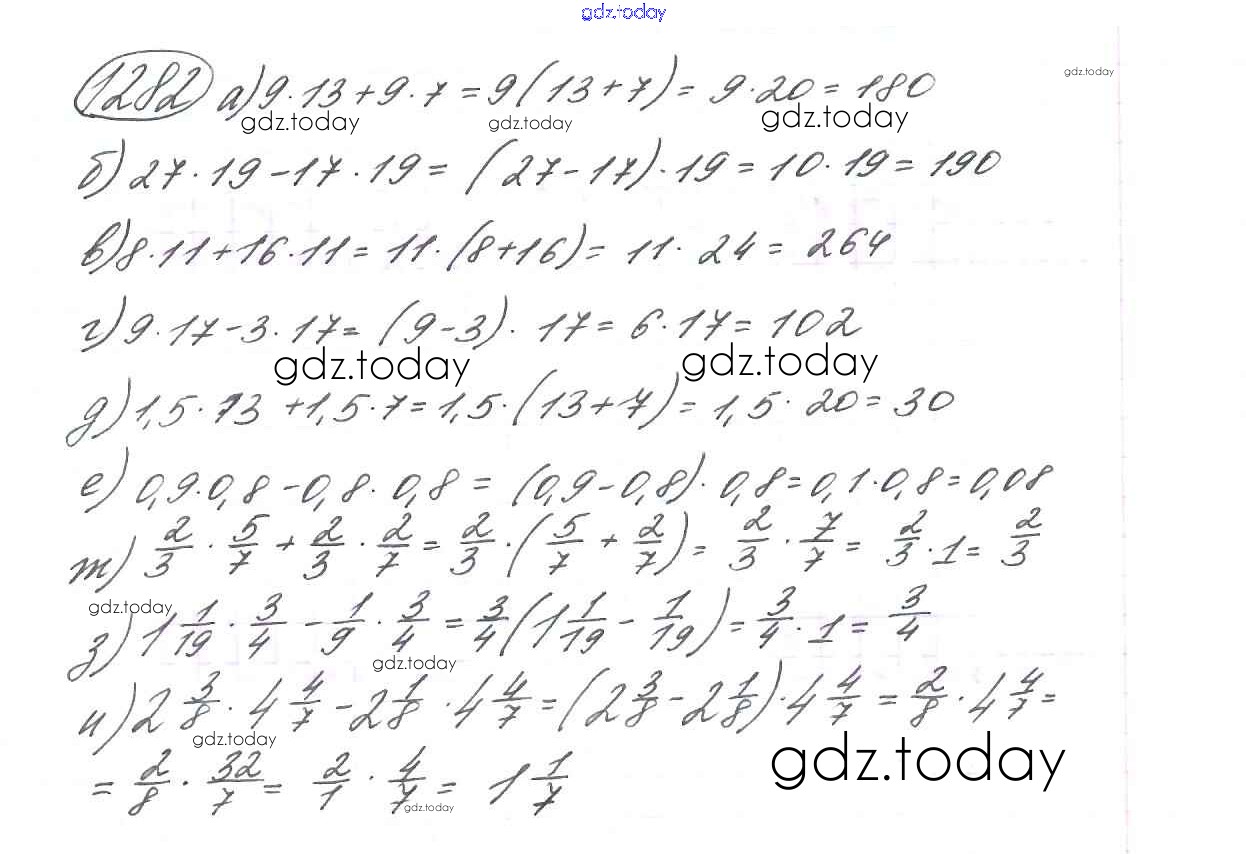 gdz.today
1282 а) 9·13+9·7=9(13+7)=9·20=180
gdz.today
gdz.today gdz.today gdz.today
б) 27·19-17·19=(27-17)·19=10·19=190
в) 8·11+16·11=11·(8+16)=11·24=264
г) 9·17-3·17=(9-3)·17=6·17=102
gdz.today gdz.today
д) 1,5·13+1,5·7=1,5·(13+7)=1,5·20=30
е) 0,9·0,8-0,8·0,8=(0,9-0,8)·0,8=0,1·0,8=0,08
ж) 2/3·5/7+2/3·2/7=2/3·(5/7+2/7)=2/3·7/7=2/3·1=2/3
gdz.today
з) 1 1/19·3/4-1/9·3/4=3/4(1 1/19-1/19)=3/4·1=3/4
gdz.today
и) 2 3/8·4 4/7-2 1/8·4 4/7=(2 3/8-2 1/8)·4 4/7=2/8·4 4/7=
gdz.today gdz.today
=2/8·32/7=2/1·4/7=1 1/7
gdz.today